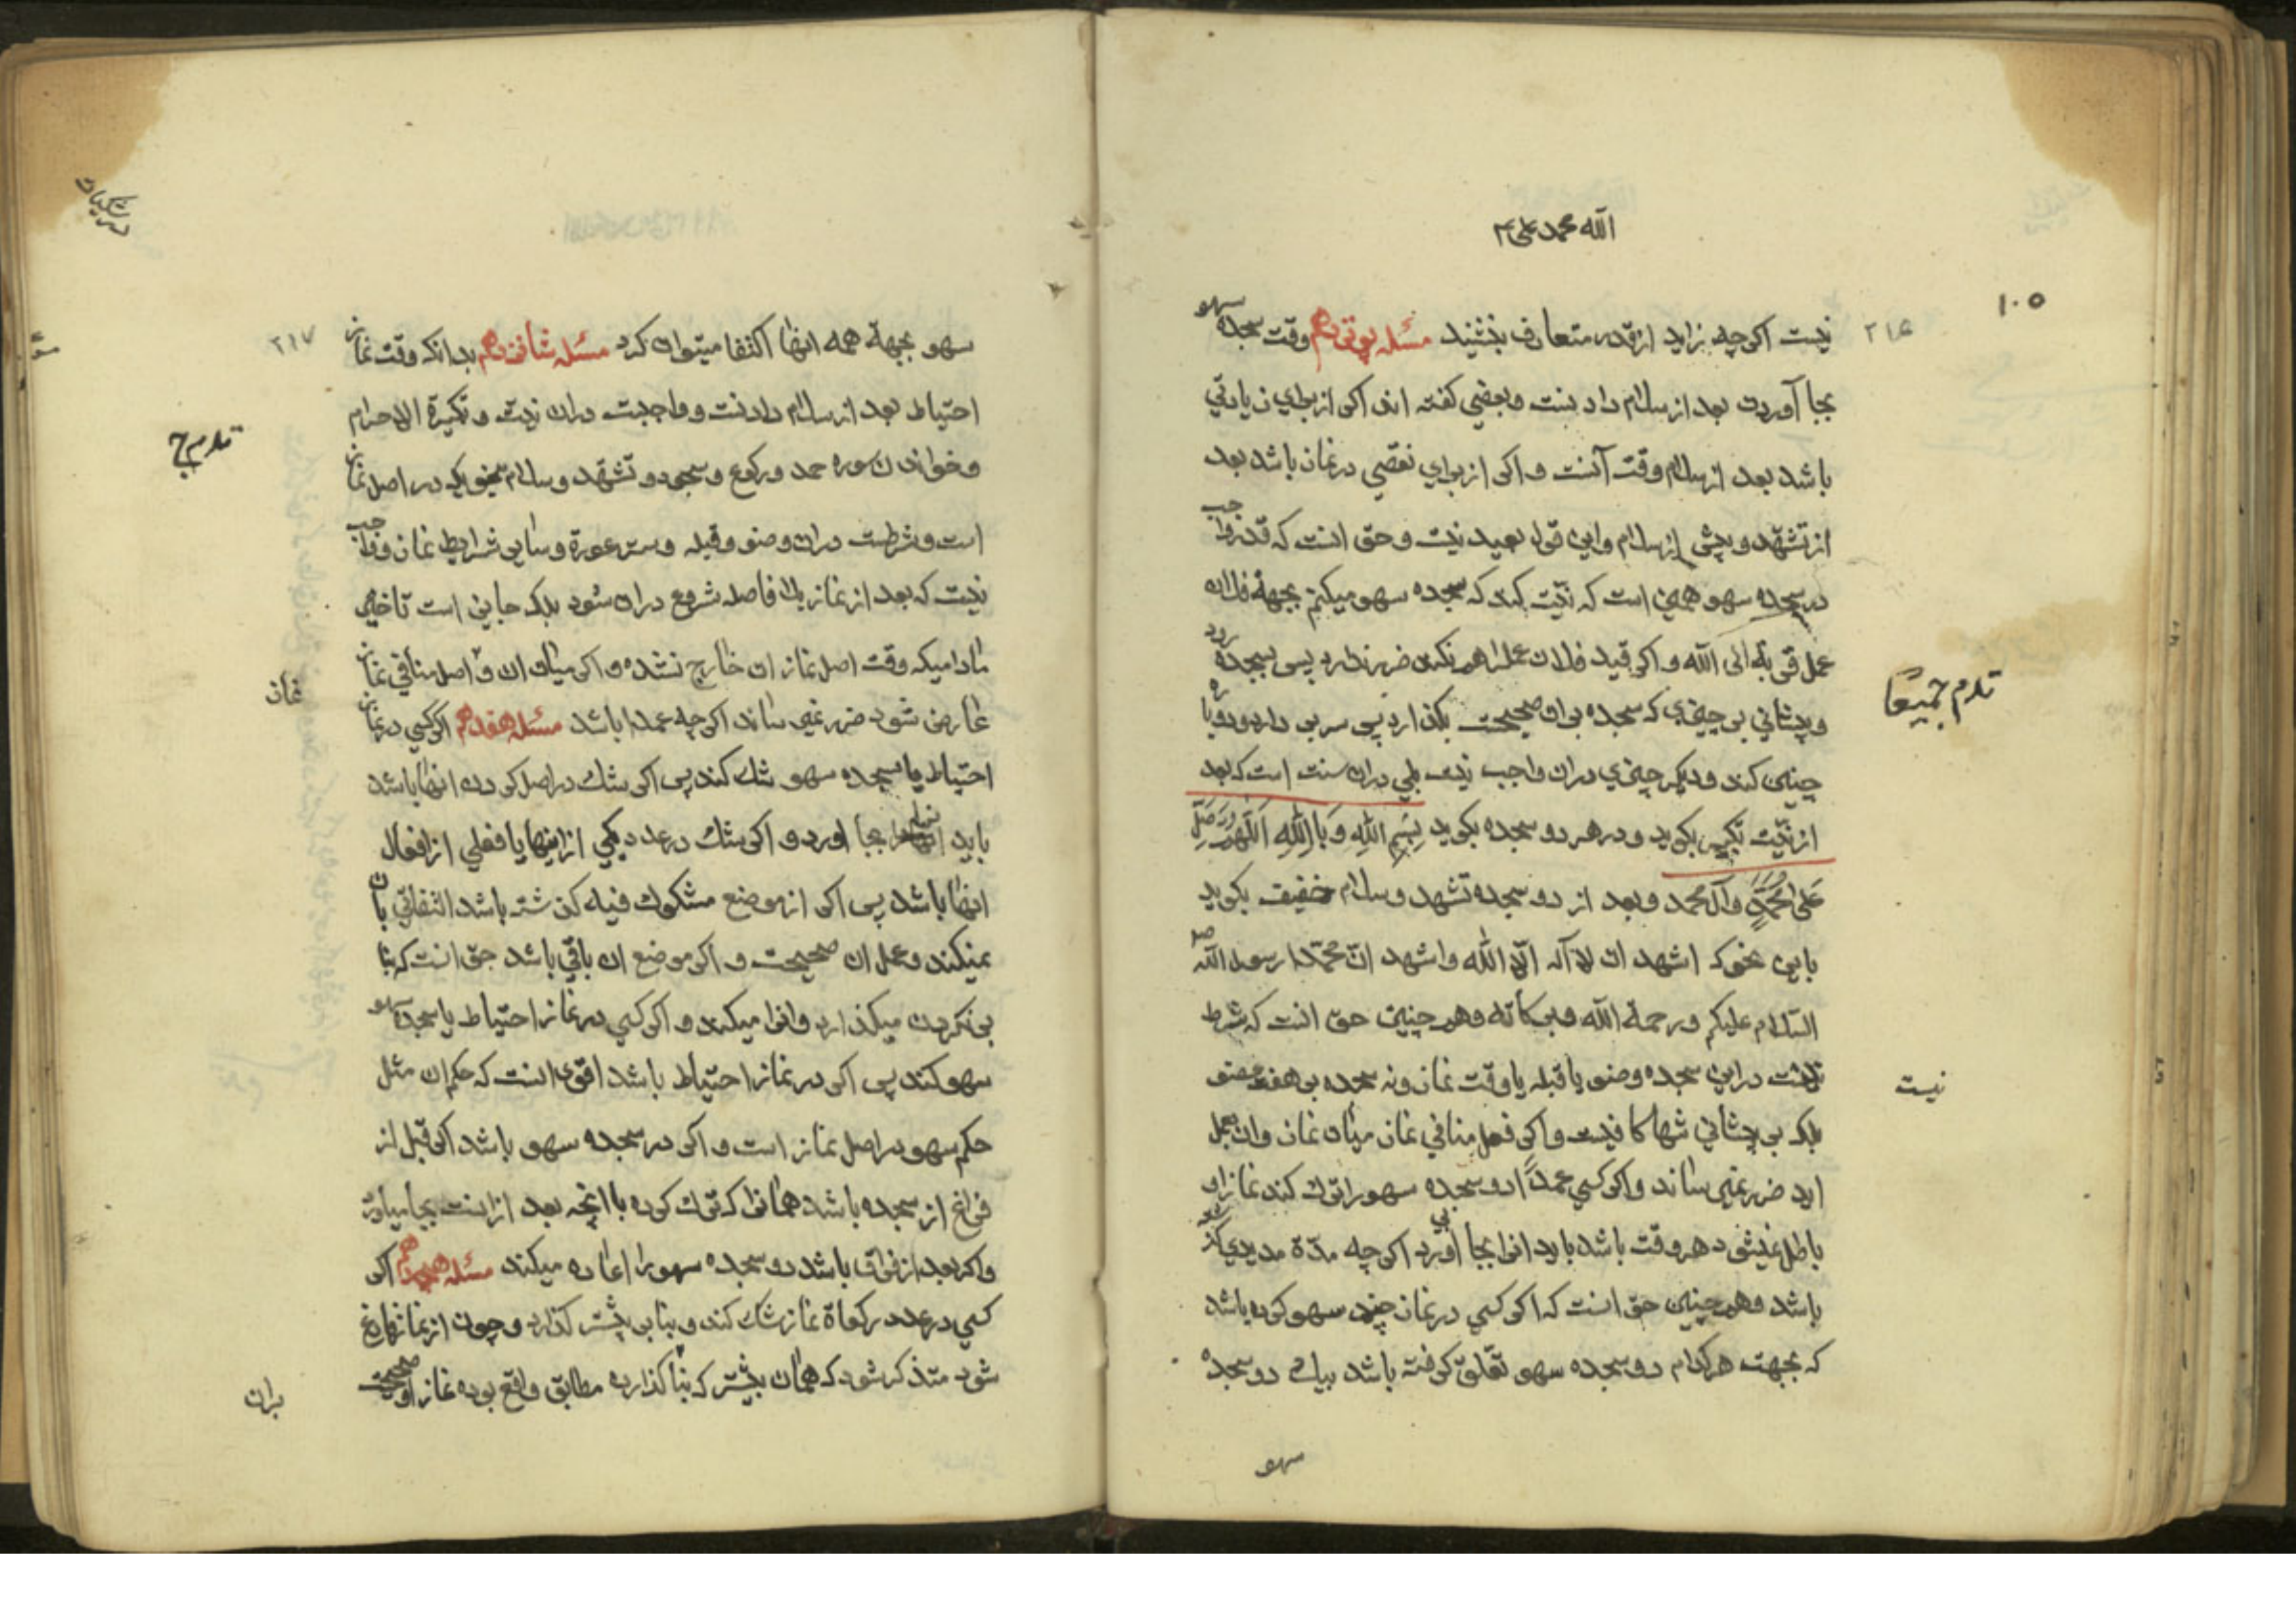 الله محمد علی
۱۰۵
۲۱۶
نیست اکرچه زاید از قدر متعارف بنشیند مسئله وقت سجده سهو
بجا آوردن بعد از سلام دادنست وبعضی کفته اند اکر از برای زیادتی
باشد بعد از سلام وقت آنست واکر از برای نقصی در نماز باشد بعد
از تشهّد وپیش از سلام واین قول بعید نیست وحق انست که قدر واجب
در سجده سهو همین است که نیّت کند که سجده سهو میکنم بجهة فلان
عمل قربة الی الله واکر قید فلان عمل را هم نکند ضرر ندارد پس بسجده رود
وپیشانی بر چیزی که سجده بران صحیحست بکذارد پس سر بر دارد ودوباره
چنین کند ودیکر چیزی دران واجب نیست بلی دران سنت است که بعد
از نیّت تکبیر بکوید ودر هر دو سجده بکوید بِسْمِ اللهِ وَبِاللهِ اَللّهُمَّ صَلِّ
عَلی مُحَمَّدٍ وَآلِ محمد وبعد از دو سجده تشهد وسلام خفیف بکوید
باین نحو که اشهد ان لا آله الّا الله واشهد انّ محمّدا رسول الله
السّلام علیکم ورحمة الله وبرکاته وهم چنین حق انست که شرط
نیست دراین سجده وضو یا قبله یا وقت نماز ونه سجده بر هفت عضو
بلکه بر پیشانی تنها کافیست واکر فعل منافی نماز میان نماز وان بعمل
اید ضرر نمیرساند واکر کسی عمداً دو سجده سهو را ترک کند نماز او
باطل نمیشود هر وقت باشد باید انرا بجا آورد اکرچه مدّة مدیدی
باشد وهم چنین حق انست که اکر کسی در نماز چند سهو کرده باشد
که بجهت هرکدام دو سجده سهو تعلّق کرفته باشد بیک دو سجده
سهو
تدرم جمیعًا
نیست
۲۱۷
سهو بجهة همه انها اکتفا میتوان کرد مسئله شانزدهم بدانکه وقت نماز
احتیاط بعد از سلام دادنست وواجبست دران نیت وتکبیرة الاحرام
وخواندن سوره حمد ورکوع وسجود وتشهّد وسلام بنحویکه در اصل نماز
است وشرطست دران وضو وقبله وستر عورة وسایر شرایط نماز وواجب
نیست که بعد از نماز بلا فاصله شروع دران شود بلکه جایز است تاخیر
مادامیکه وقت اصل نماز ان خارج نشده واکر میان ان واصل منافی نماز
عارض شود ضرر نمیرساند اکرچه عمدا باشد مسئله هفدهم اکر کسی در نماز
احتیاط یا سجده سهو شک کند پس اکر شک در اصل کردن انها باشد
باید بجا اورد واکر شک در عدد یکی از اینها یا فعلی از افعال
انها باشد پس اکر از موضع مشکوک فیه کذشته باشد التفاتی بان
نمیکند وعمل ان صحیحست واکر موضع ان باقی باشد حق انست که بنا
بر نکردن میکذارد وانرا میکند واکر کسی در نماز احتیاط یا سجده سهو
سهو کند پس اکر در نماز احتیاط باشد اقوی انست که حکم ان مثل
حکم سهو در اصل نماز است واکر در سجده سهو باشد اکر قبل از
فراغ از سجده باشد همانرا که ترک کرده با انچه بعد از انست بجا میاورد
واکر بعد از فراق باشد دو سجده سهو را اعاده میکند مسئله هیجدهم اکر
کسی در عدد رکعاة نماز شک کند وبنا بر بیشتر کذارد وچون از نماز فارغ
شود متذکر شود که همان بیشتر که بنا کذارده مطابق واقع بوده نماز او صحیحست
بران
نماز